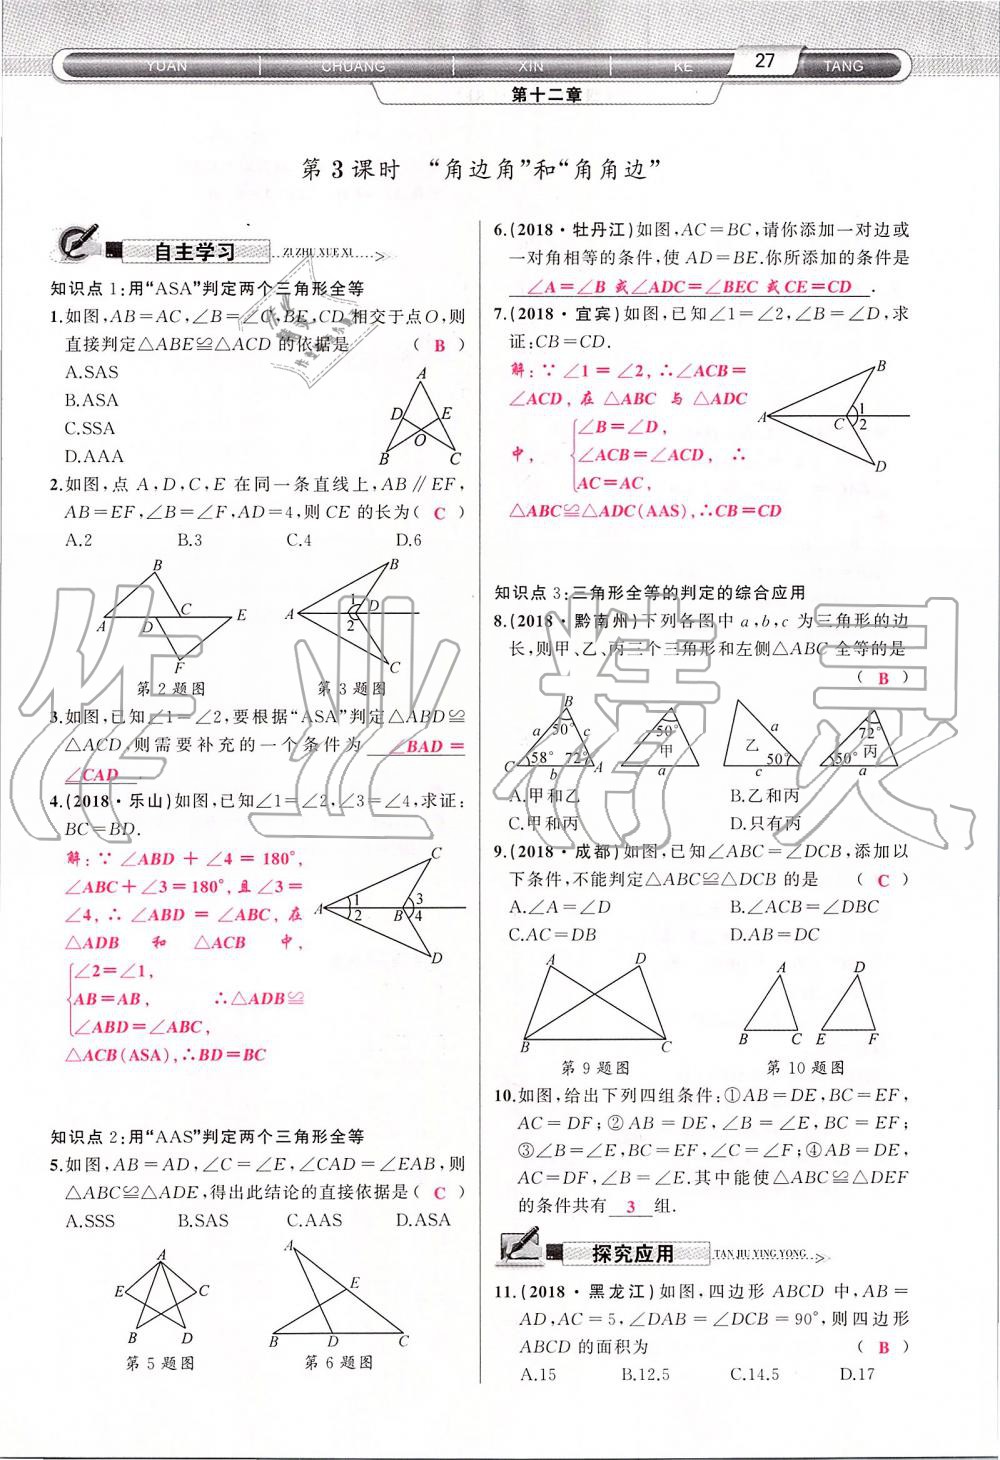 YUAN CHUANG XIN KE 27 TANG
第十二章
第3课时 “角边角”和“角角边”
自主学习 ZI ZHU XUE XI
知识点1:用“ASA”判定两个三角形全等
1.如图,AB=AC,∠B=∠C,BE,CD相交于点O,则
直接判定△ABE≌△ACD的依据是 ( B )
A.SAS
B.ASA
C.SSA
D.AAA
A
D E
O
B C
2.如图,点A,D,C,E在同一条直线上,AB∥EF,
AB=EF,∠B=∠F,AD=4,则CE的长为( C )
A.2 B.3 C.4 D.6
B
C
A D E
F
第2题图
B
1
A D
2
C
第3题图
3.如图,已知∠1=∠2,要根据“ASA”判定△ABD≌
△ACD,则需要补充的一个条件为 ∠BAD=
∠CAD .
4.(2018·乐山)如图,已知∠1=∠2,∠3=∠4,求证:
BC=BD.
解:∵∠ABD+∠4=180°,
∠ABC+∠3=180°,且∠3=
∠4,∴∠ABD=∠ABC,在
△ADB 和 △ACB 中,
∠2=∠1,
AB=AB, ∴△ADB≌
∠ABD=∠ABC,
△ACB(ASA),∴BD=BC
C
1 3
A B
2 4
D
知识点2:用“AAS”判定两个三角形全等
5.如图,AB=AD,∠C=∠E,∠CAD=∠EAB,则
△ABC≌△ADE,得出此结论的直接依据是( C )
A.SSS B.SAS C.AAS D.ASA
A
E C
B D
第5题图
A
E
B D C
第6题图
6.(2018·牡丹江)如图,AC=BC,请你添加一对边或
一对角相等的条件,使AD=BE.你所添加的条件是
∠A=∠B或∠ADC=∠BEC或CE=CD .
7.(2018·宜宾)如图,已知∠1=∠2,∠B=∠D,求
证:CB=CD.
解:∵∠1=∠2,∴∠ACB=
∠ACD,在△ABC与△ADC
∠B=∠D,
中, ∠ACB=∠ACD, ∴
AC=AC,
△ABC≌△ADC(AAS),∴CB=CD
B
1
A C
2
D
知识点3:三角形全等的判定的综合应用
8.(2018·黔南州)下列各图中a,b,c为三角形的边
长,则甲、乙、丙三个三角形和左侧△ABC全等的是
( B )
B
50°
a c
58° 72°
C b A
c 50° a
甲
a
c
乙
50°
a
72°
丙
50°
a
A.甲和乙 B.乙和丙
C.甲和丙 D.只有丙
9.(2018·成都)如图,已知∠ABC=∠DCB,添加以
下条件,不能判定△ABC≌△DCB的是 ( C )
A.∠A=∠D B.∠ACB=∠DBC
C.AC=DB D.AB=DC
A D
B C
第9题图
A D
B C E F
第10题图
10.如图,给出下列四组条件:①AB=DE,BC=EF,
AC=DF;②AB=DE,∠B=∠E,BC=EF;
③∠B=∠E,BC=EF,∠C=∠F;④AB=DE,
AC=DF,∠B=∠E.其中能使△ABC≌△DEF
的条件共有 3 组.
探究应用 TAN JIU YING YONG
11.(2018·黑龙江)如图,四边形ABCD中,AB=
AD,AC=5,∠DAB=∠DCB=90°,则四边形
ABCD的面积为 ( B )
A.15 B.12.5 C.14.5 D.17
作业精灵